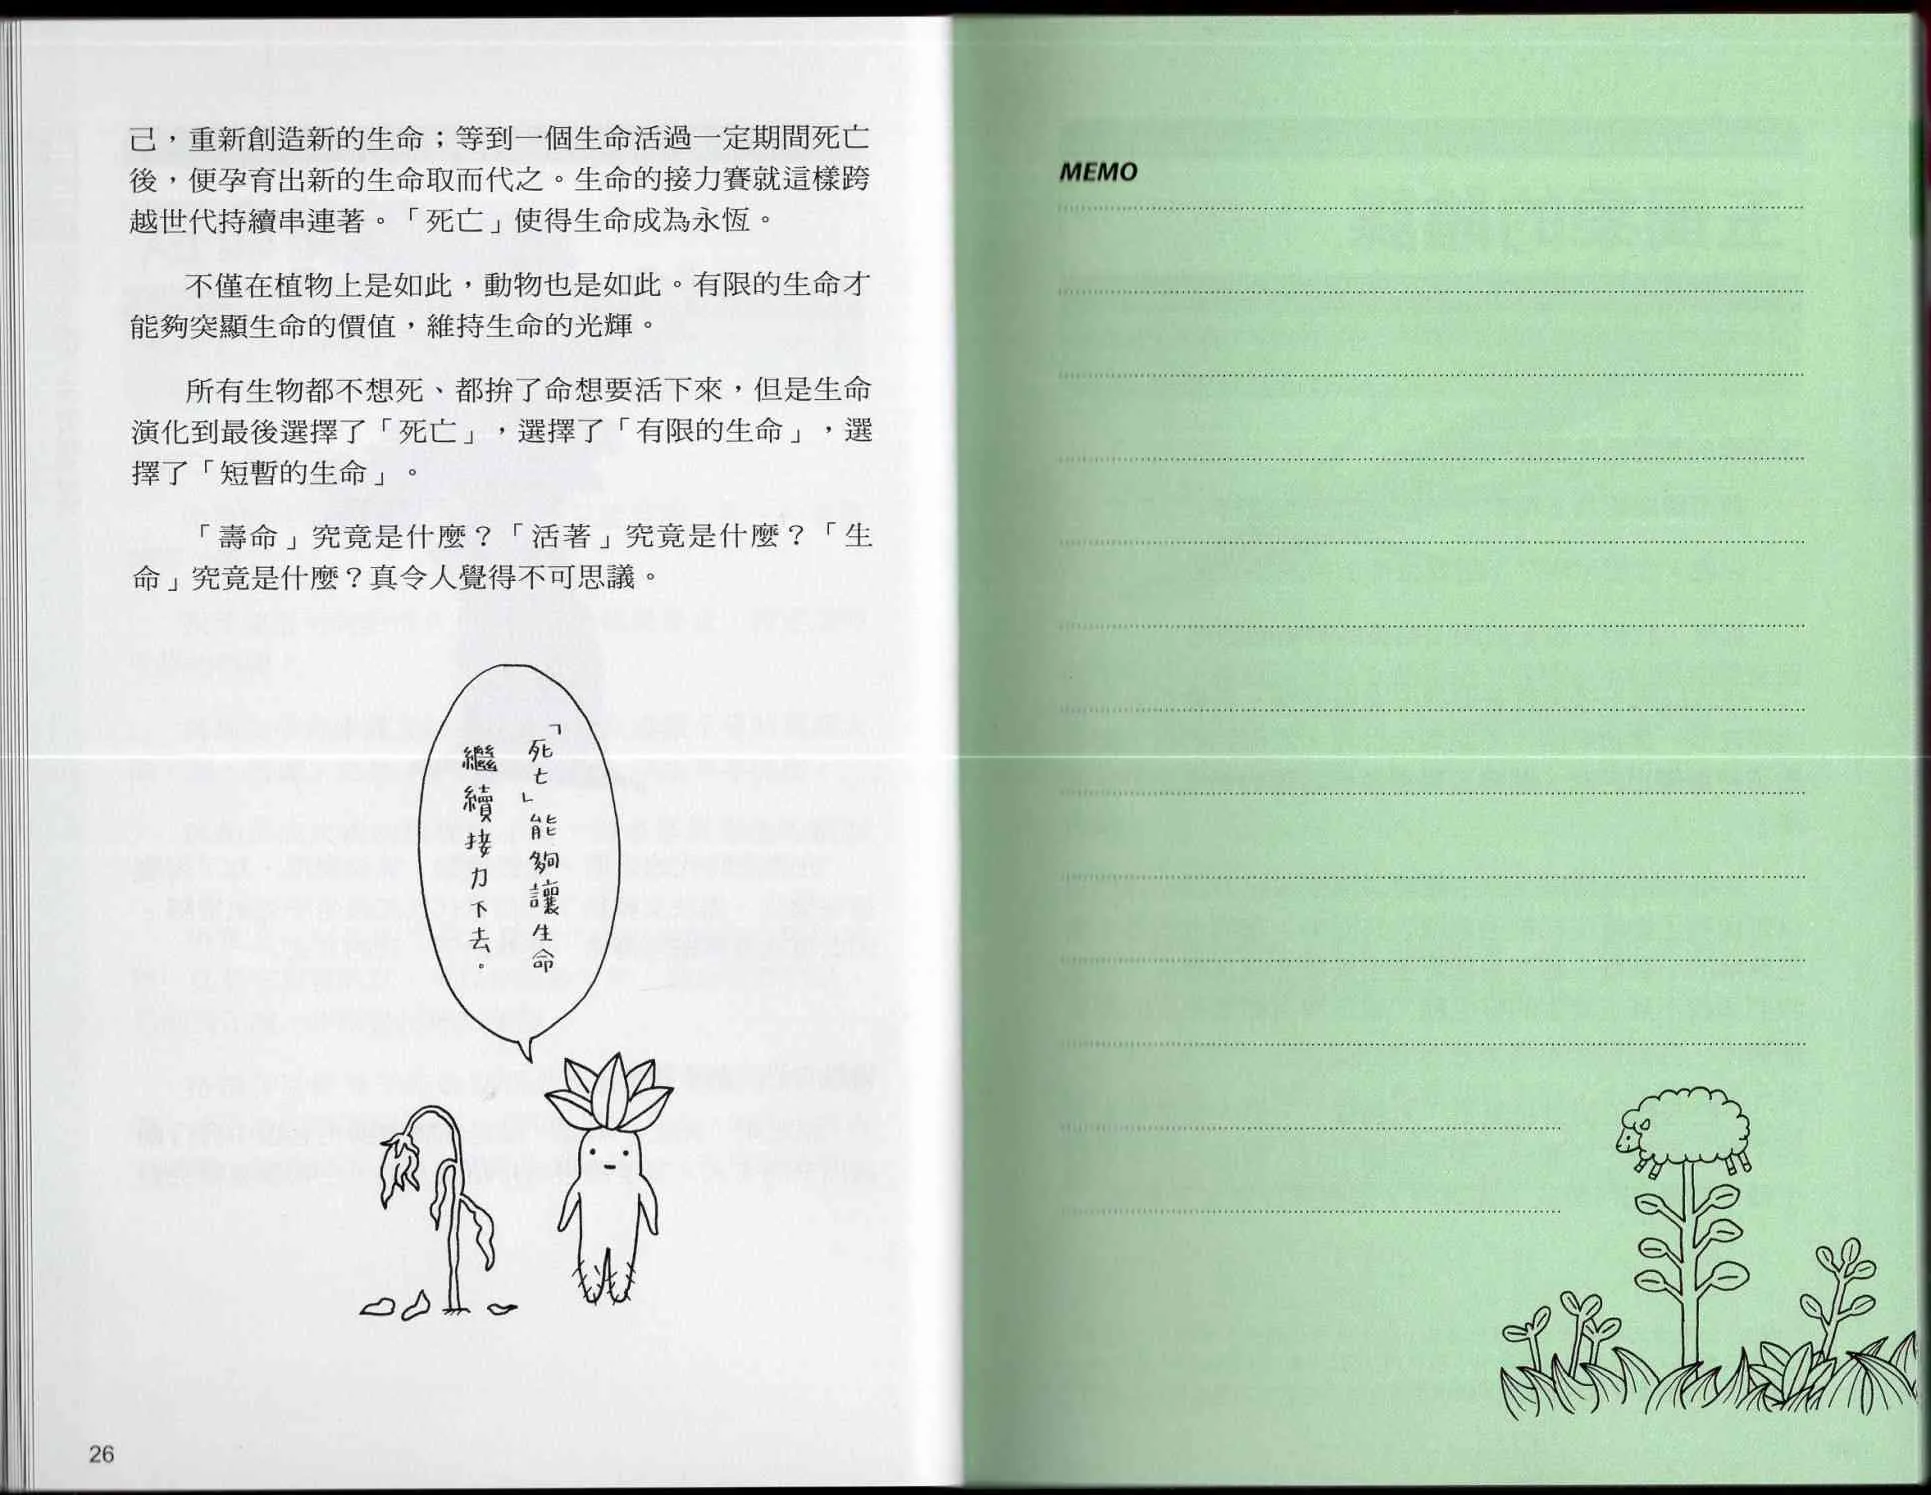 己，重新創造新的生命；等到一個生命活過一定期間死亡
後，便孕育出新的生命取而代之。生命的接力賽就這樣跨
越世代持續串連著。「死亡」使得生命成為永恆。
不僅在植物上是如此，動物也是如此。有限的生命才
能夠突顯生命的價值，維持生命的光輝。
所有生物都不想死、都拚了命想要活下來，但是生命
演化到最後選擇了「死亡」，選擇了「有限的生命」，選
擇了「短暫的生命」。
「壽命」究竟是什麼？「活著」究竟是什麼？「生
命」究竟是什麼？真令人覺得不可思議。
「死亡」能夠讓生命
繼續接力下去。
26
MEMO